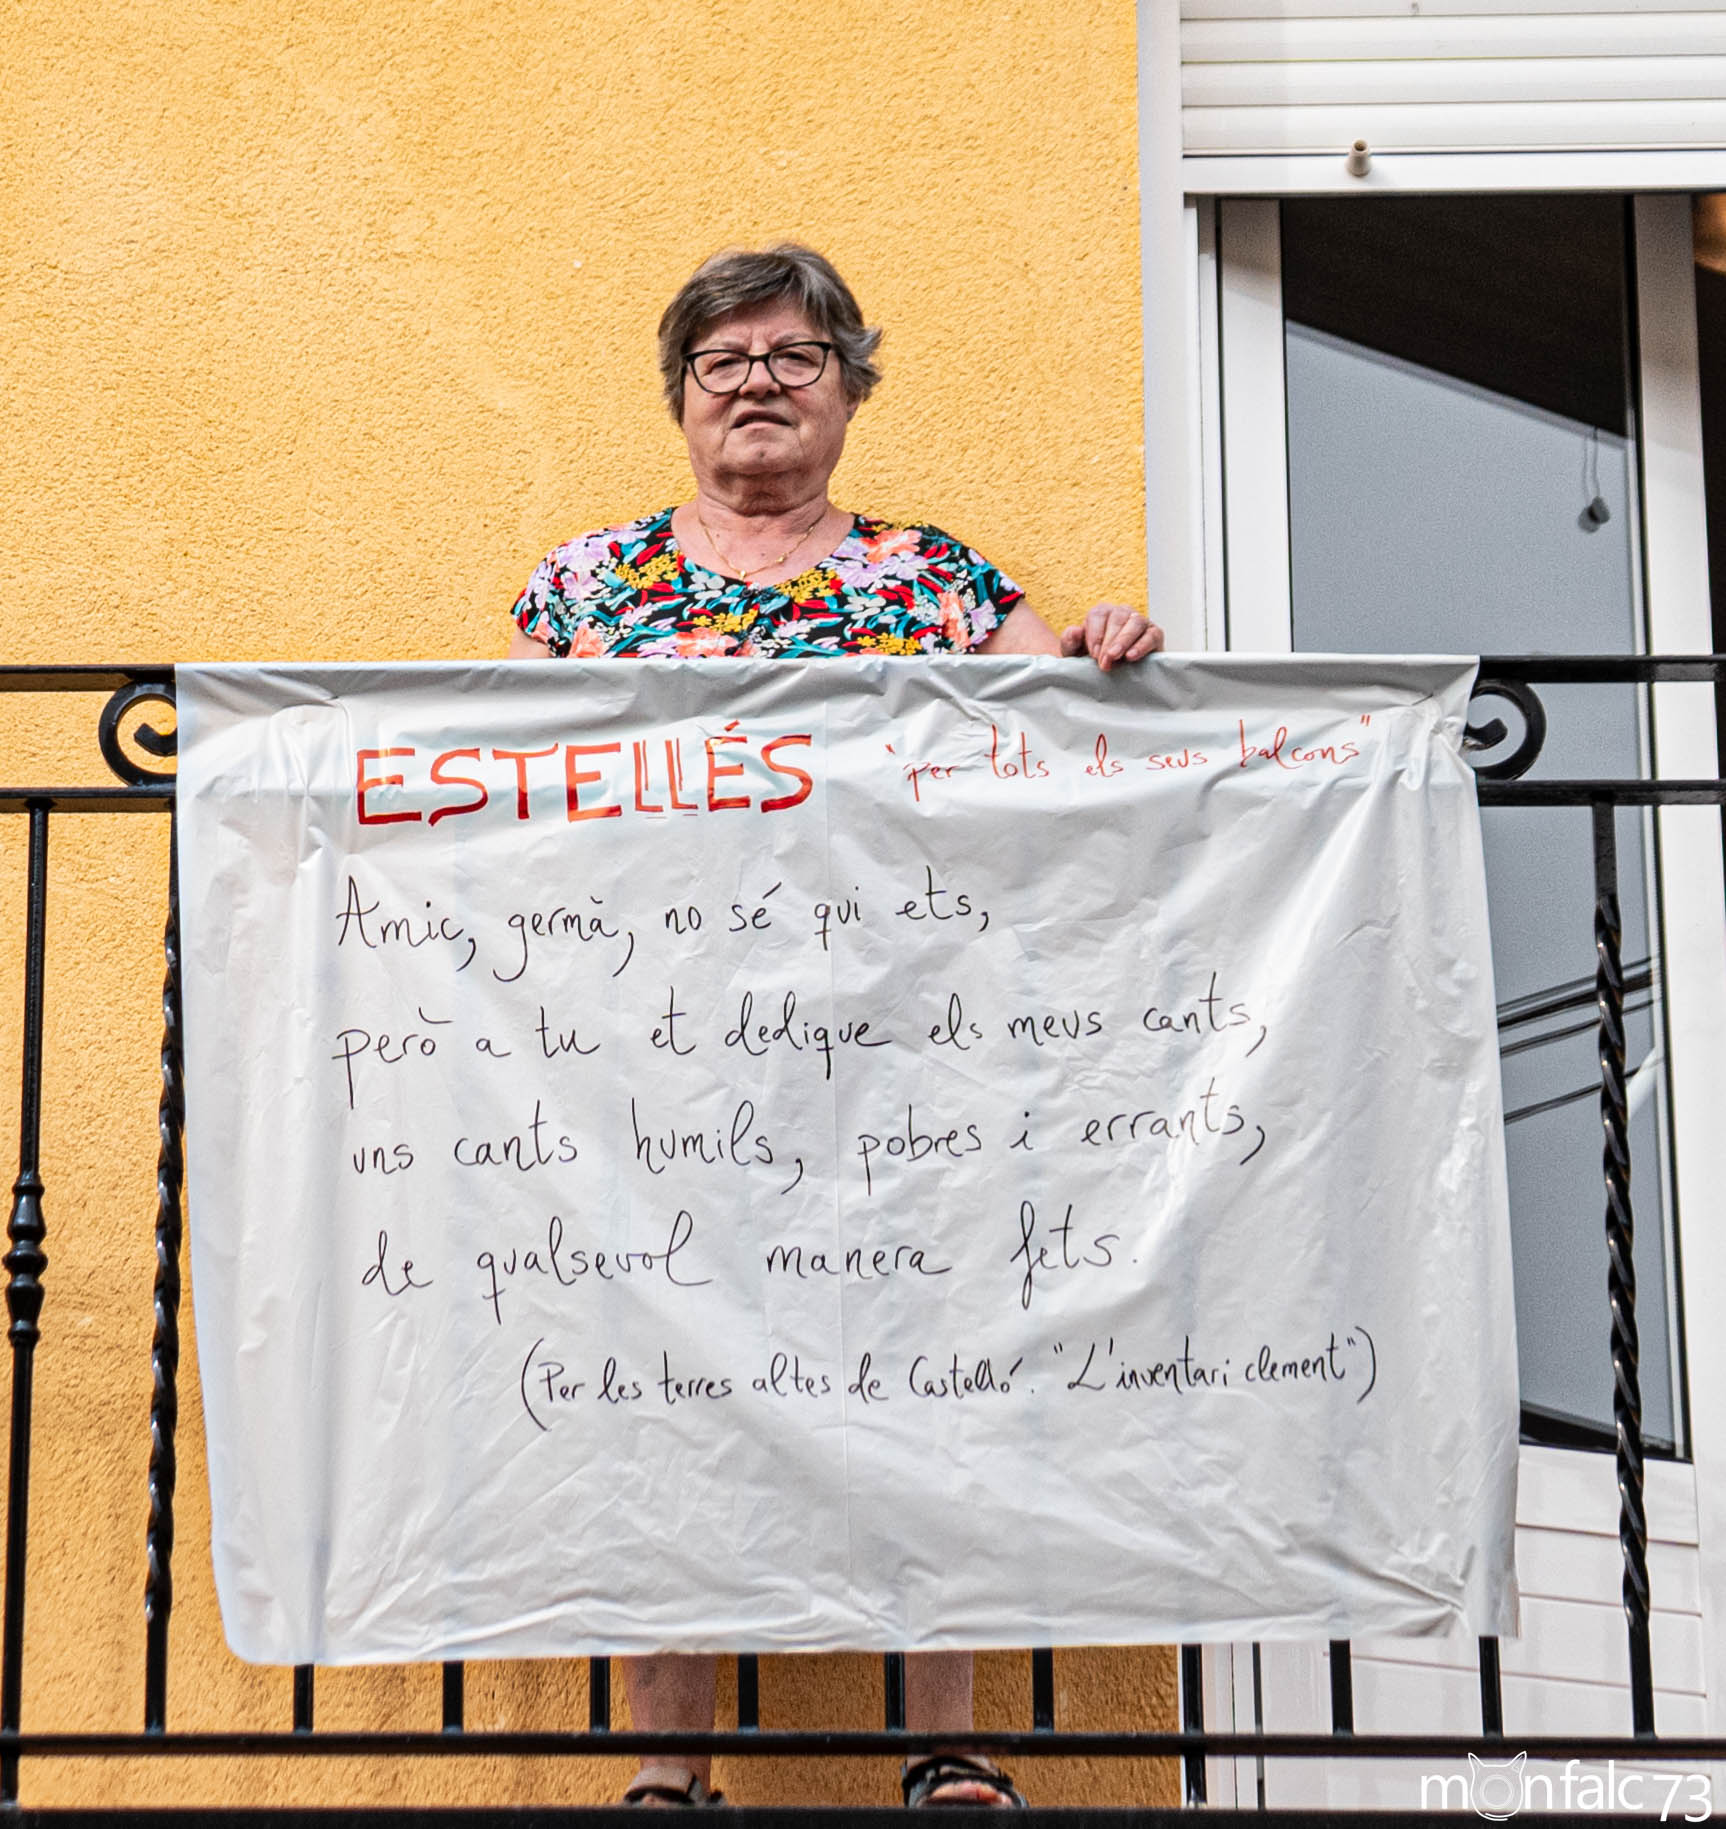 ESTELLÉS "per tots els seus balcons"
Amic, germà, no sé qui ets,
però a tu et dedique els meus cants,
uns cants humils, pobres i errants,
de qualsevol manera fets.
(Per les terres altes de Castelló. "L'inventari clement")
monfalc 73